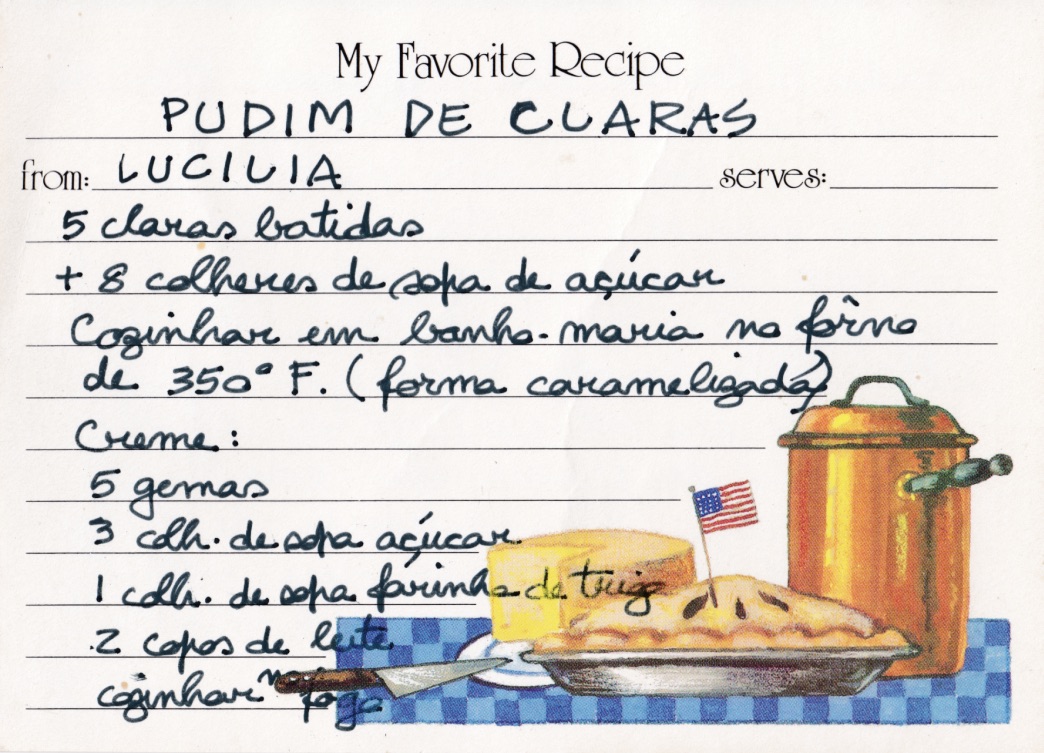 My Favorite Recipe
PUDIM DE CLARAS
from: LUCILIA serves:
5 claras batidas
+ 8 colheres de sopa de açúcar
Cozinhar em banho-maria no fôrno
de 350° F. (forma caramelizada)
Creme:
5 gemas
3 colh. de sopa açúcar.
1 colh. de sopa farinha de trigo
2 copos de leite
cozinhar no fogo